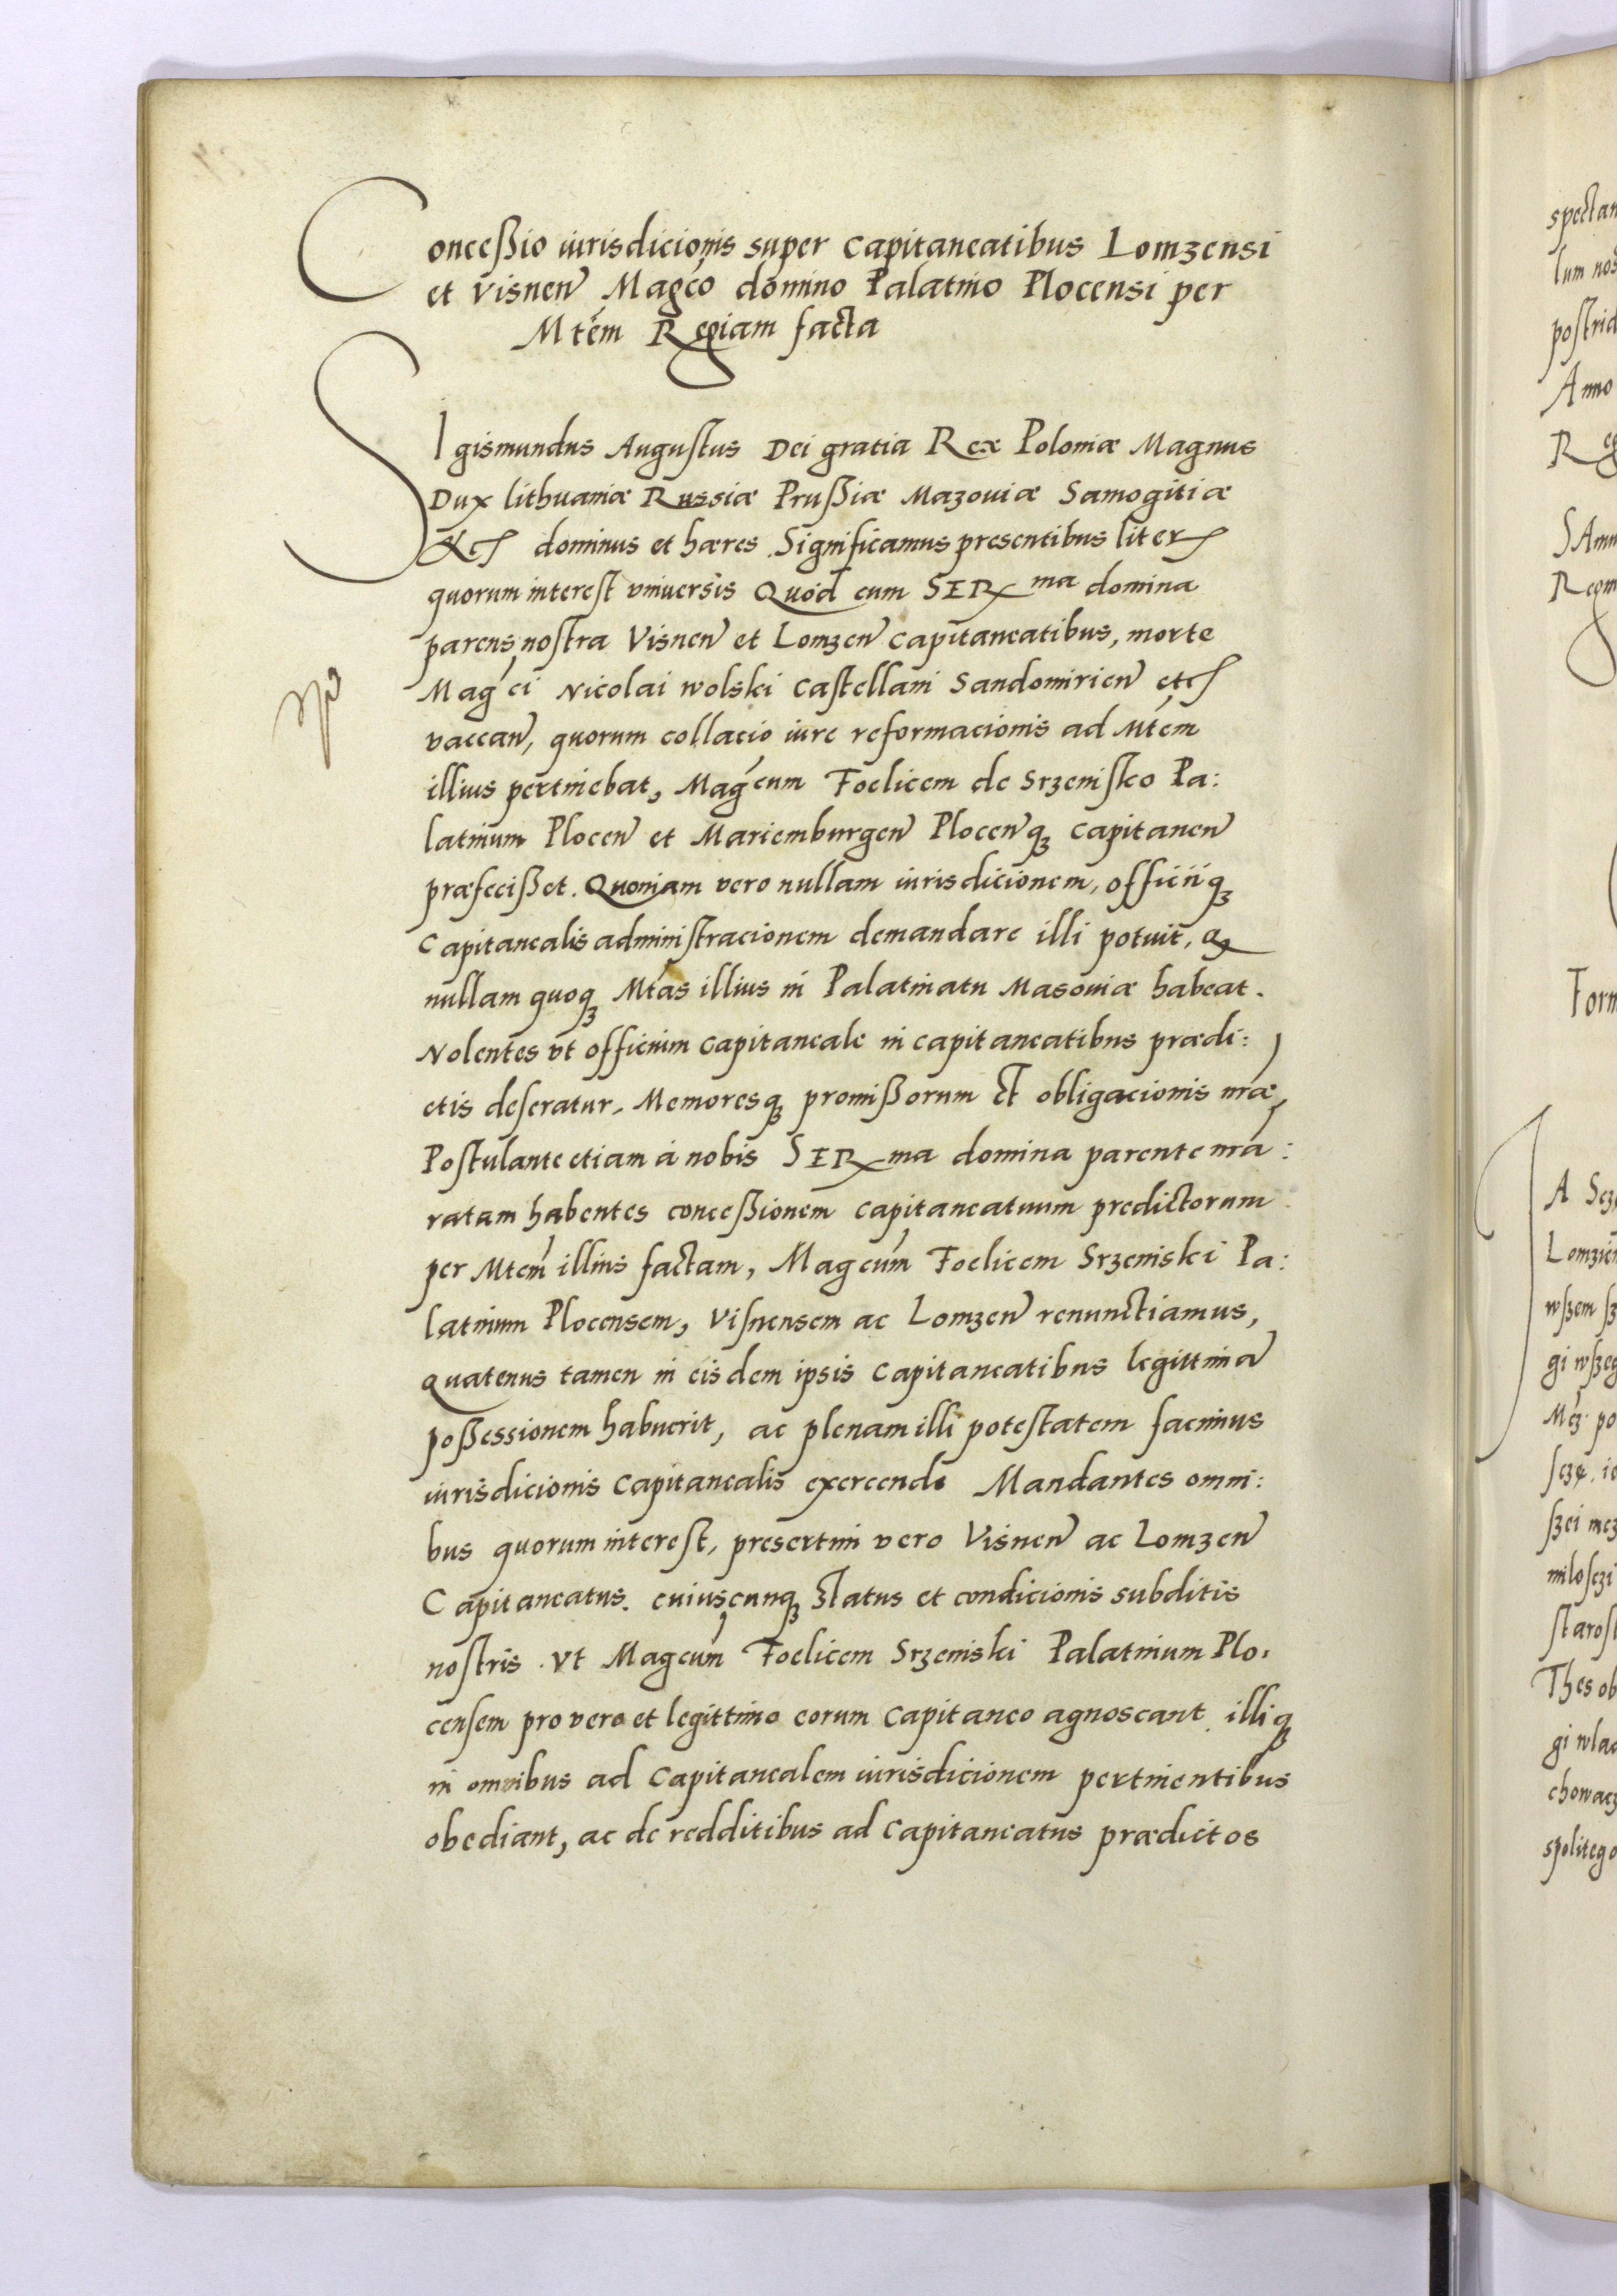 Conceßio iurisdicionis super Capitaneatibus Lomzensi
et Visnen̄ Mag̃co domino Palatino Plocensi per
Mtẽm Regiam facta
SIgismundus Augustus Dei gratia Rex Poloniæ Magnus
Dux lithuaniæ Russiæ Prußiæ Mazouiæ Samogitiæ
&c dominus et hæres. Significamus presentibus liter
quorum interest vniuersis Quod cum SER ma domina
parens nostra Visnen̄ et Lomzen̄ Capitaneatibus, morte
Mag̃ci Nicolai wolski Castellani Sandomirien̄ etc
vaccan̄, quorum collacio iure reformacionis ad Mtẽm
illius pertinebat, Mag̃cum Foelicem de Srzenisko Pa:
latinum Plocen̄ et Mariemburgen̄ Plocen̄qꝫ Capitanen̄
præfecißet. Quoniam vero nullam iurisdicionem, officiiqꝫ
Capitanealis administracionem demandare illi potuit,
nullam quoqꝫ Mtãs illius in Palatinatu Masouiæ habeat.
Nolentes vt officium Capitaneale in capitaneatibus prædi:
ctis deseratur, Memoresqꝫ promißorum et obligacionis nr̃æ,
Postulante etiam á nobis SER ma domina parente nr̃a:
ratam habentes conceßionem Capitaneatuum predictorum
per Mtẽm illius factam, Mag̃cum Foelicem Srzeniski Pa:
latinum Plocensem, Visnensem ac Lomzen̄ renunctiamus,
Quatenus tamen in eisdem ipsis Capitaneatibus legittima
poßessionem habuerit, ac plenam illi potestatem facimus
iurisdicionis Capitanealis exercende Mandantes omni:
bus quorum interest, presertim vero Visnen̄ ac Lomzen̄
Capitaneatus. cuiuscunqꝫ status et condicionis subditis
nostris. Vt Mag̃cum Foelicem Srzeniski Palatinum Plo.
censem pro vero et legittimo eorum Capitaneo agnoscant illiqꝫ
in omnibus ad Capitanealem iurisdicionem pertinentibus
obediant, ac de redditibus ad Capitaneatus prædictos
spectan
lum nos
postrid
Anno
Reg
SAmu
Regni
Form
JA Scz
Lomzien
wszem sz
gi wszeg
Mcz po
scze. ic
szei mcz
milosczi
starost
Thes ob
gi wlad
chowacz
spolitego